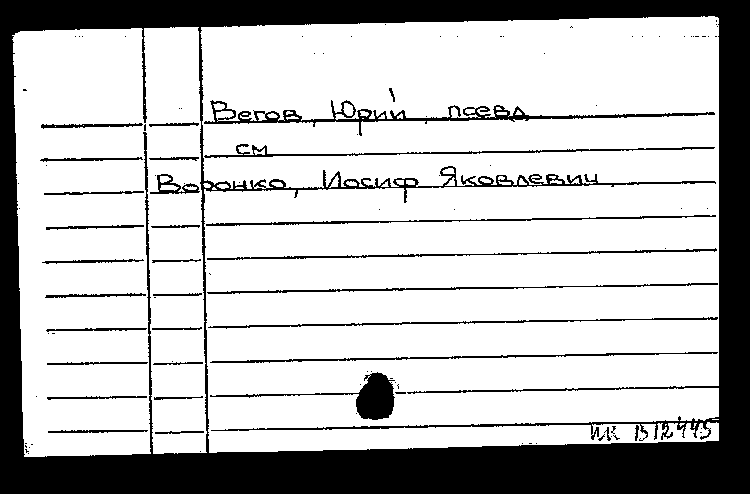 Вегов, Юрий, псевд
см
Воронко, Иосиф Яковлевич.
ИК В12445